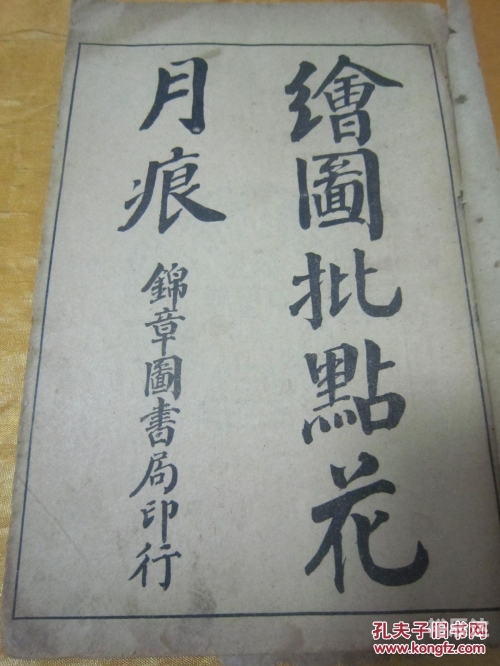 繪圖批點花
月痕
錦章圖書局印行
孔夫子旧书网
kongfz.com